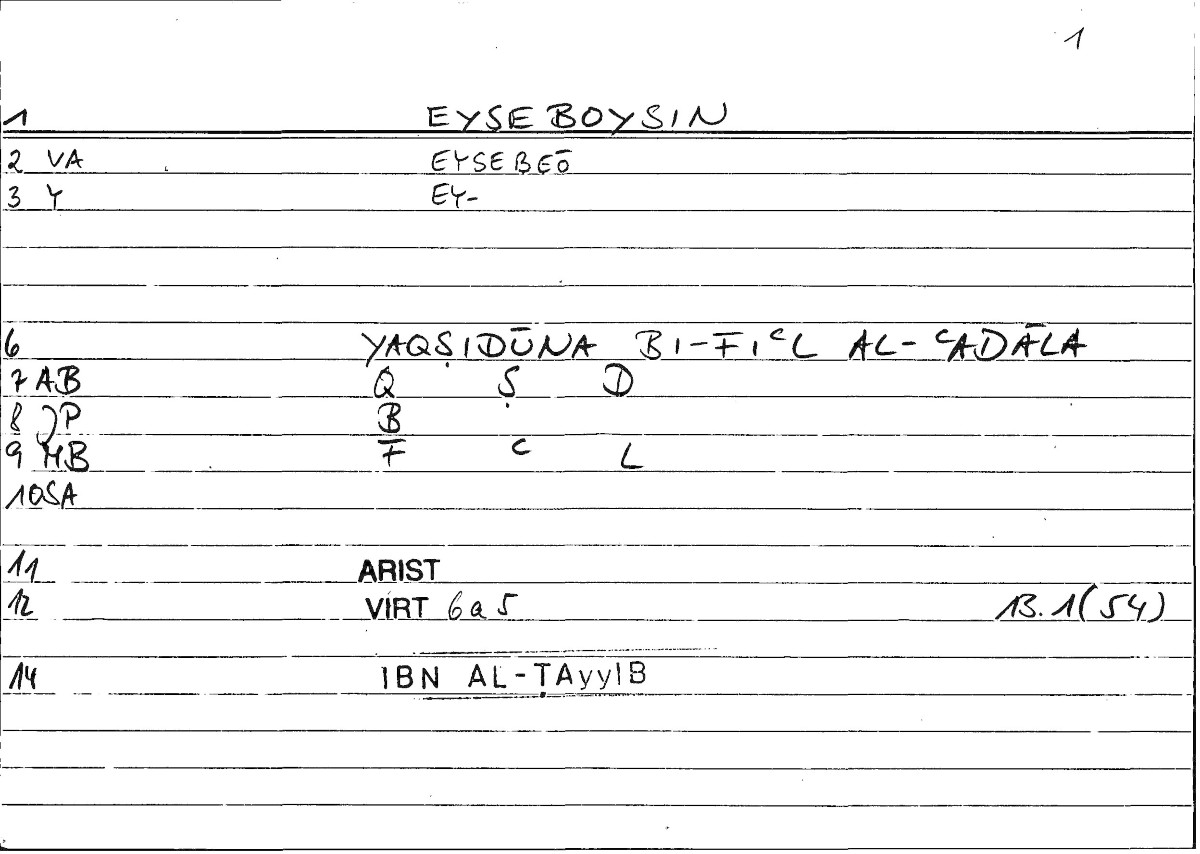 1
1 EYSEBOYSIN
2 VA EYSEBEŌ
3 Y EY-
6 YAQṢIDŪNA BI-FIᶜL AL-ᶜADĀLA
7 AB Q Ṣ D
8 JP B
9 MB F ᶜ L
10 SA
11 ARIST
12 VIRT 6a5 13.1(54)
14 IBN AL-ṬAyyIB